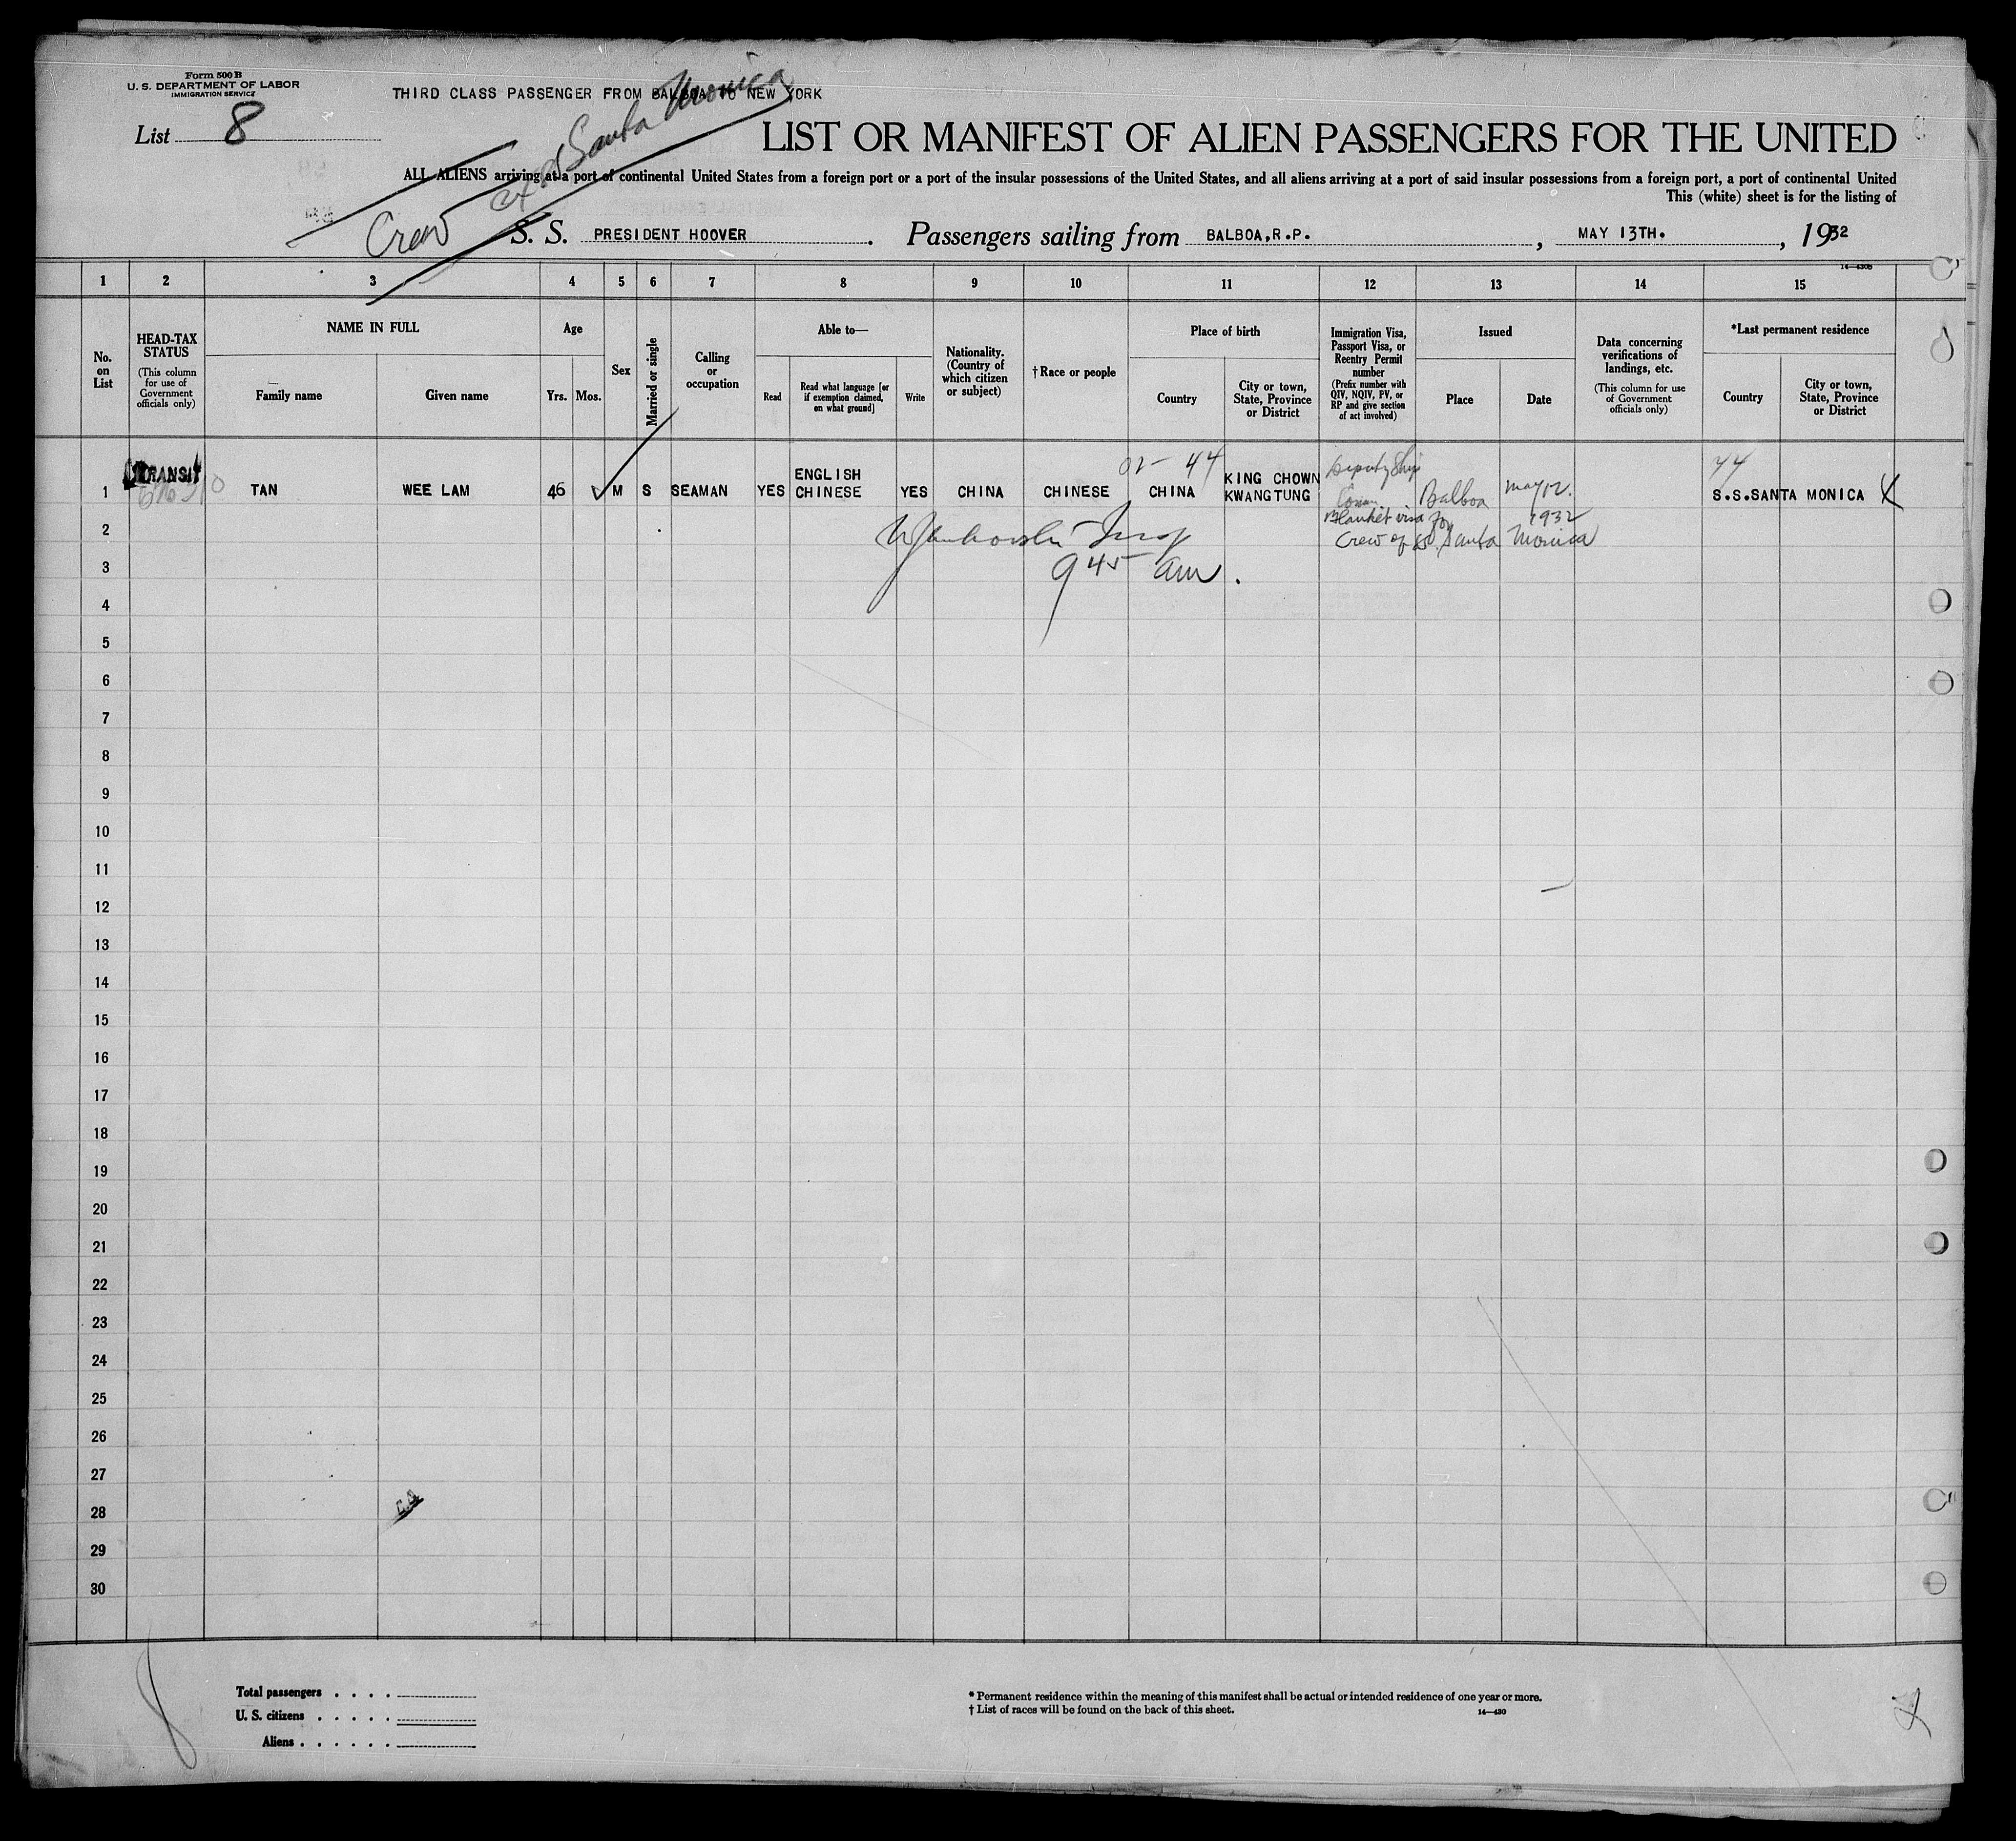 Form 500 B
U. S. DEPARTMENT OF LABOR
IMMIGRATION SERVICE
THIRD CLASS PASSENGER FROM BALBOA TO NEW YORK
List 8
LIST OR MANIFEST OF ALIEN PASSENGERS FOR THE UNITED
ALL ALIENS arriving at a port of continental United States from a foreign port or a port of the insular possessions of the United States, and all aliens arriving at a port of said insular possessions from a foreign port, a port of continental United
This (white) sheet is for the listing of
Crew of SS Santa Monica
S. S. PRESIDENT HOOVER. Passengers sailing from BALBOA,R.P., MAY 13TH., 1932
14—430B
1 2 3 4 5 6 7 8 9 10 11 12 13 14 15
No. on List
HEAD-TAX STATUS
(This column for use of Government officials only)
NAME IN FULL
Family name
Given name
Age
Yrs.
Mos.
Sex
Married or single
Calling or occupation
Able to—
Read
Read what language [or if exemption claimed, on what ground]
Write
Nationality. (Country of which citizen or subject)
†Race or people
Place of birth
Country
City or town, State, Province or District
Immigration Visa, Passport Visa, or Reentry Permit number
(Prefix number with QIV, NQIV, PV, or RP and give section of act involved)
Issued
Place
Date
Data concerning verifications of landings, etc.
(This column for use of Government officials only)
*Last permanent residence
Country
City or town, State, Province or District
1 TRANSIT TAN WEE LAM 46 M S SEAMAN YES ENGLISH CHINESE YES CHINA CHINESE CHINA KING CHOWN KWANGTUNG Balboa May 12. 1932 S.S.SANTA MONICA
44
44
Deputy Ship
Blanket visa for
Crew of SS. Santa Monica
Insp
9 45 am.
2
3
4
5
6
7
8
9
10
11
12
13
14
15
16
17
18
19
20
21
22
23
24
25
26
27
28
29
30
8
Total passengers . . . .
U. S. citizens . . . . .
Aliens . . . . . .
* Permanent residence within the meaning of this manifest shall be actual or intended residence of one year or more.
† List of races will be found on the back of this sheet.
14—430